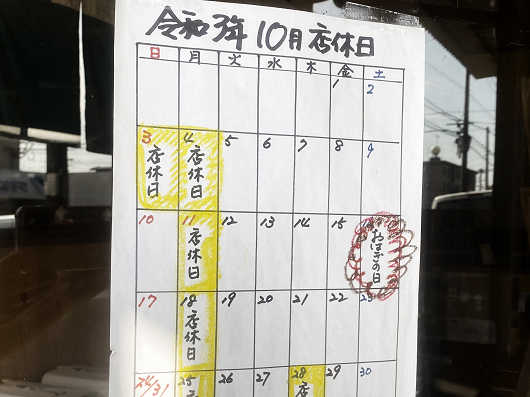 令和3年10月店休日
日 月 火 水 木 金 土
1 2
3 4 5 6 7 8 9
店休日 店休日
10 11 12 13 14 15
店休日
おはぎの日
17 18 19 20 21 22 23
店休日
24/31 25 26 27 28 29 30
店